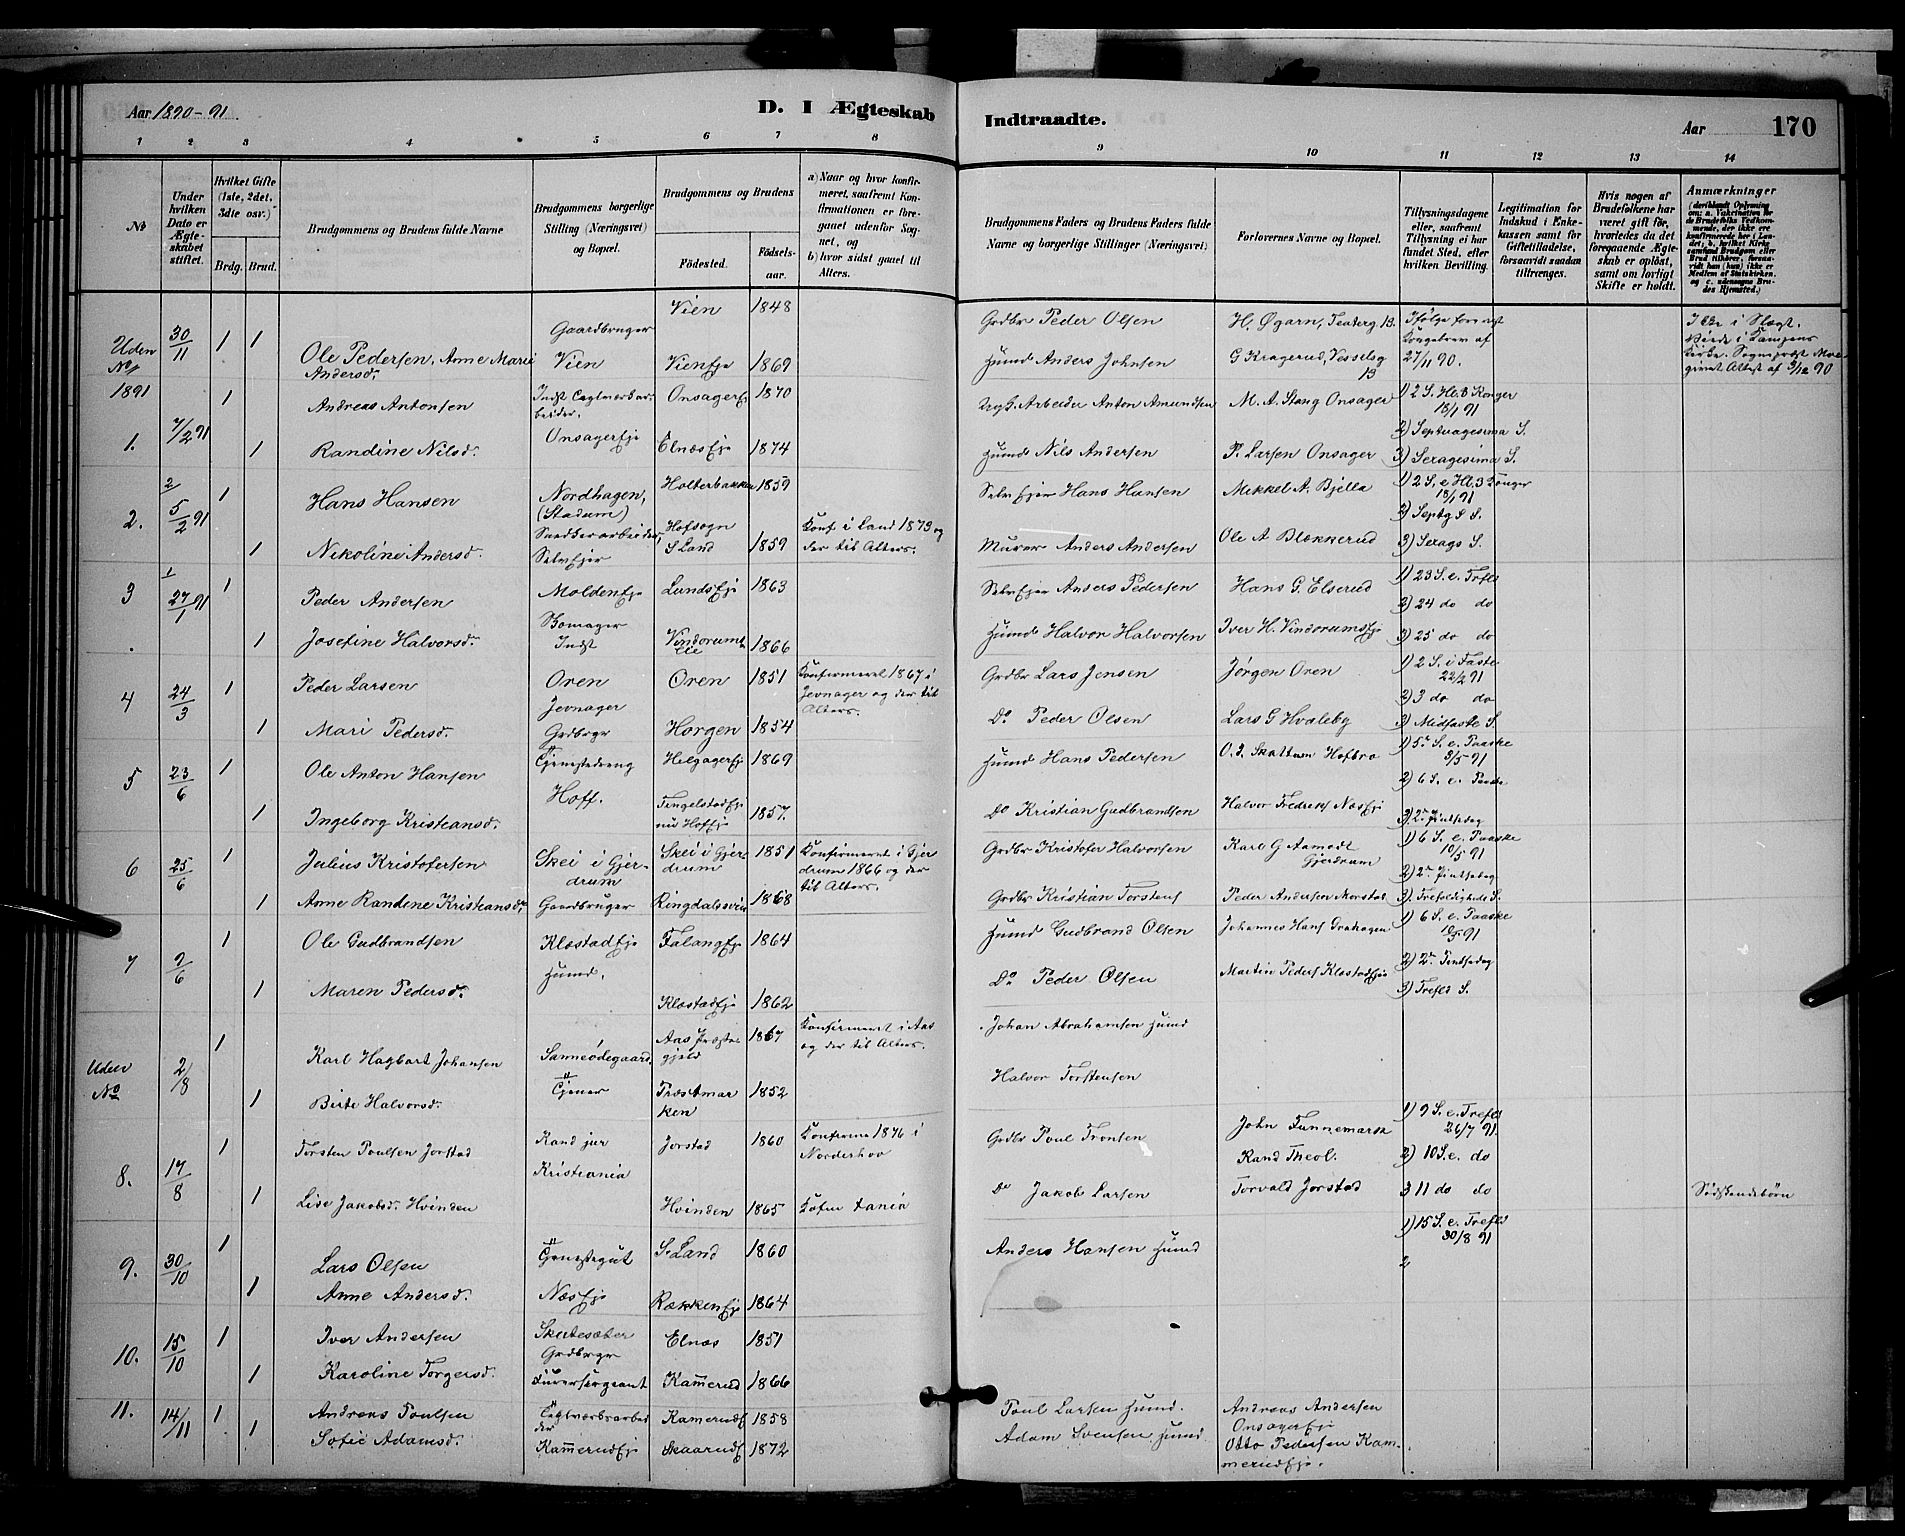 Aar 1890-91.
D. I Ægteskab Indtraadte.
Aar
170
1 2 3 4 5 6 7 8 9 10 11 12 13 14
No
Under hvilken Dato er Ægteskabet stiftet.
Hvilket Gifte (1ste, 2det, 3die osv.)
Brdg. Brud.
Brudgommens og Brudens fulde Navne
Brudgommens borgerlige Stilling (Næringsvei) og Bopæl.
Brudgommens og Brudens
Fødested.
Fødselsaar.
a) Naar og hvor konfirmeret, saafremt Konfirmationen er foregaaet udenfor Sognet, og
b) hvor sidst gaaet til Alters.
Brudgommens Faders og Brudens Faders fulde Navne og borgerlige Stillinger (Næringsvei)
Forlovernes Navne og Bopæl.
Tillysningsdagene eller, saafremt Tillysning ei har fundet Sted, efter hvilken Bevilling.
Legitimation for Indskud i Enkekassen samt for Giftetilladelse, forsaavidt saadan tiltrænges.
Hvis nogen af Brudefolkene har været gift før, hvorledes da det foregaaende Ægteskab er opløst, samt om lovligt Skifte er holdt.
Anmærkninger
Uden No 30/11 1 1
Ole Pedersen, Anne Marie Andersd.
Gaardbruger
Vien
Vien 1848
Vieneje 1869
Grdbr Peder Olsen
Husmd Anders Johnsen
H. Øgarn, Teaterg 13.
G. Kragerud, Vesselsg 13
27/11 90.
1891
1. 7/2 91 1 1
Andreas Antonsen
Randine Nilsd.
Onsagereje
Onsagerej 1870
Elnæseje 1874
Arbeider Anton Amundsen
Husmd Nils Andersen
M. A. Stang Onsager
P. Larsen Onsager
1) 2 S. Hl. 3 Konger 18/1 91
2) Septuagesima S.
3) Sexagesima S.
2. 5/2 91 1 1
Hans Hansen
Nikoline Andersd.
Nordhagen,
(Stadum)
Snedkerarbeider,
Selvejer
Holterbakken 1859
Hofsogn S Land 1859
Konf. i Land 1873 og der til Alters.
Selvejer Hans Hansen
Murer Anders Andersen
Mikkel A. Bjella
Ole A Blekkerud
1) 2 S. e Hl. 3 Konger 18/1 91
2) Septg S S.
3) Sexags S.
3 27/1 91 1 1
Peder Andersen
Josefine Halvorsd.
Moldeneje
Skomager
Indst
Lundseje 1863
Vindorumseie 1866
Selvejer Anders Pedersen
Husmd Halvor Halvorsen
Hans G. Elserud
Iver H. Vindorumseje
1) 23 S. e. Trefs
2) 24 do do
3) 25 do do
4 24/3 1 1
Peder Larsen
Mari Pedersd.
Oren
Jevnager
Grdbrgr
Oren 1851
Horgen 1854
Konfirmeret 1867 i Jevnager og der til Alters.
Grdbr Lars Jensen
Do Peder Olsen
Jørgen Oren
Lars G Hvaleby
1) 2 S. i Faste 22/2 91
2) 3 do do
3) Midfaste S.
5 23/6 1 1
Ole Anton Hansen
Ingeborg Kristiansd.
Tjenestedreng
Hoff.
Helgagerej 1869
Tingelstadej nu Hofej 1857.
Husmd Hans Pedersen
Do Kristian Gudbrandsen
O. J. Skattum Hofbro
Halvor Fredriks Næseje
1) 5te S. e. Paaske 3/5 91
2) 6 S. e. Paaske
3) 2n Pintsedag
6 25/6 1 1
Julius Kristofersen
Anne Randine Kristiansd.
Skei i Gjerdrum
Gaardbruger
Skei i Gjerdrum 1851
Ringdalsvein 1868
Konfirmeret i Gjerdrum 1866 og der til Alters.
Grdbr Kristofer Halvorsen
Grdbr Kristian Torstens
Karl G Aamodt Gjerdrum
Peder Andersen Morstad
1) 6 S. e. Paaske 10/5 91
2) 2n Pintsedag
3) Trefoldigheds S.
7 9/6 1 1
Ole Gudbrandsen
Maren Pedersd.
Klæstadeje
Husmd.
Falangeje 1864
Klæstadeje 1862
Husmd Gudbrand Olsen
Do Peder Olsen
Johannes Hans Grahagen
Martin Peders Klæstadeje
1) 6 S. e. Paaske 10/5 91
2) 2n Pintsedag
3) Trefs S.
Uden No 2/8 1 1
Karl Hagbart Johansen
Birte Halvorsd.
Sanneødegaard.
Tjener
Aas Præstegjeld 1867
Træstmarken 1852
Konfirmeret i Aas og der til Alters.
Johan Abrahamsen Husmd
Halvor Torstensen
8. 17/8 1 1
Torsten Poulsen Jorstad
Lise Jakobsd. Hvinden
Kand jur
Kristiania
Jorstad 1860
Hvinden 1865
Konfirme 1876 i Norderhov
Grdbr Poul Tronsen
Do Jakob Larsen
John Tannemark
Kand Theol.
Torvald Jorstad
1) 9 S. e. Trefs 26/7 91.
2) 10 S. e. do
3 11 do do
Södskendebörn
9. 30/10 1 1
Lars Olsen
Anne Andersd.
Tjenestegut
Næseje
S. Land 1860
Rækkeneje 1864
Anders Hansen Husmd
1) 15 S. e. Trefs 30/8 91
2
10. 15/10 1 1
Iver Andersen
Karoline Torgersd.
Skutesæter
Grdbrgr
Elnæs 1851
Kammerud 1866
11. 14/11 1 1
Andreas Poulsen
Sofie Adamsd.
Teglværksarbeider
Kammerudeje
Kamerudej 1858
Skaarudej 1872
Poul Larsen Husmd.
Adam Svensen Husmd.
Andreas Andersen Onsagereje
Otto Pedersen Kammerudeje.